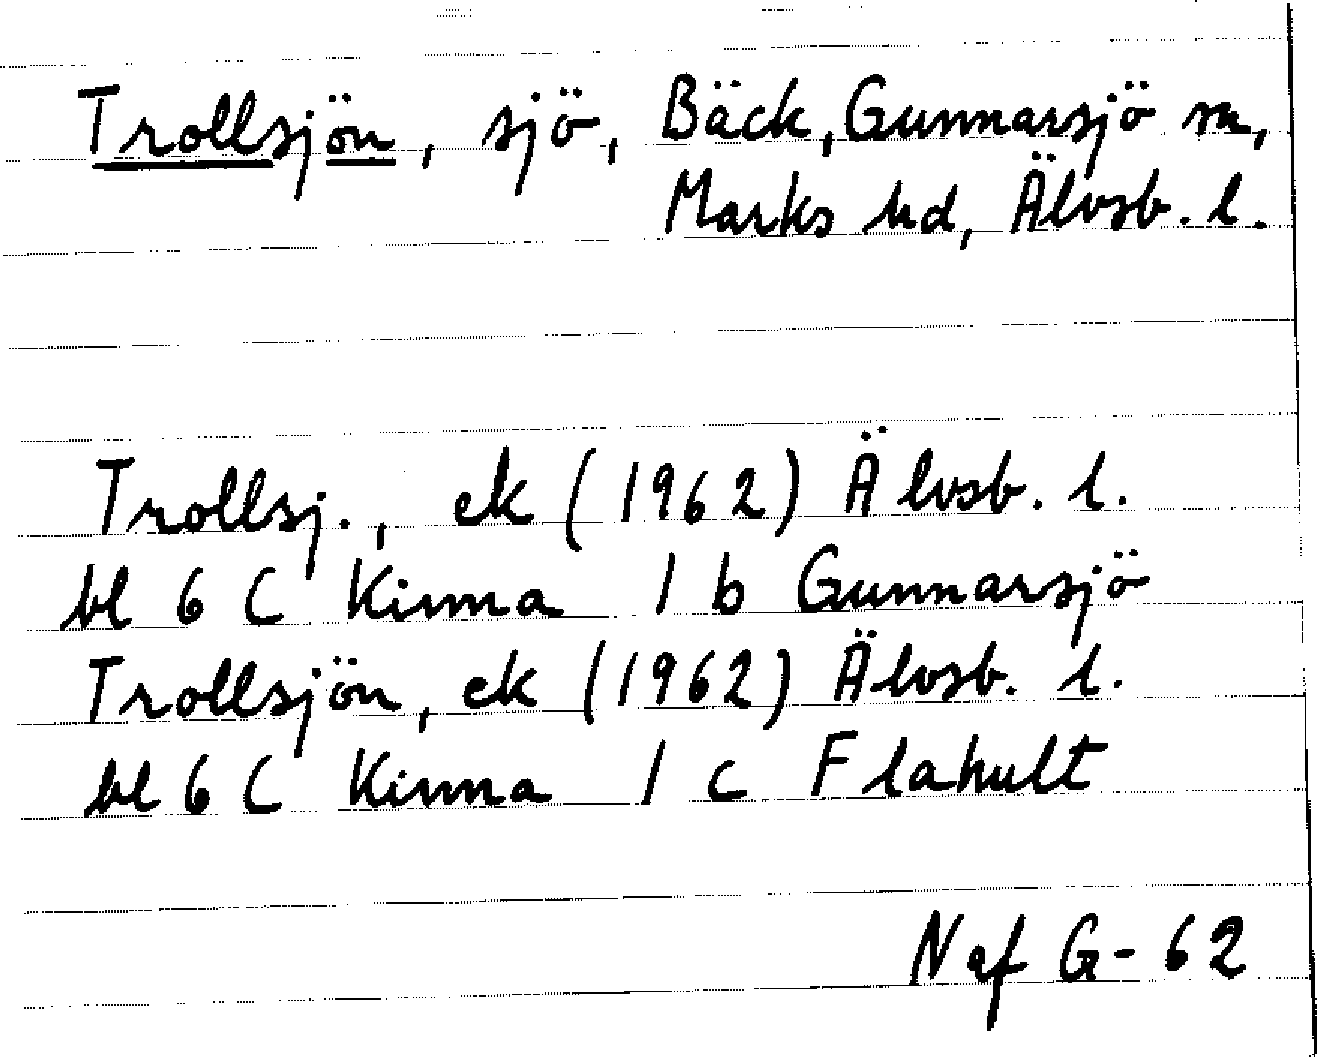 Trollsjön, sjö, Bäck, Gunnarsjö sn,
Marks hd, Älvsb. l.
Trollsj., ek (1962) Älvsb. l.
bl 6 C Kinna 1 b Gunnarsjö
Trollsjön, ek (1962) Älvsb. l.
bl 6 C Kinna 1 c Flahult
Naf G-62